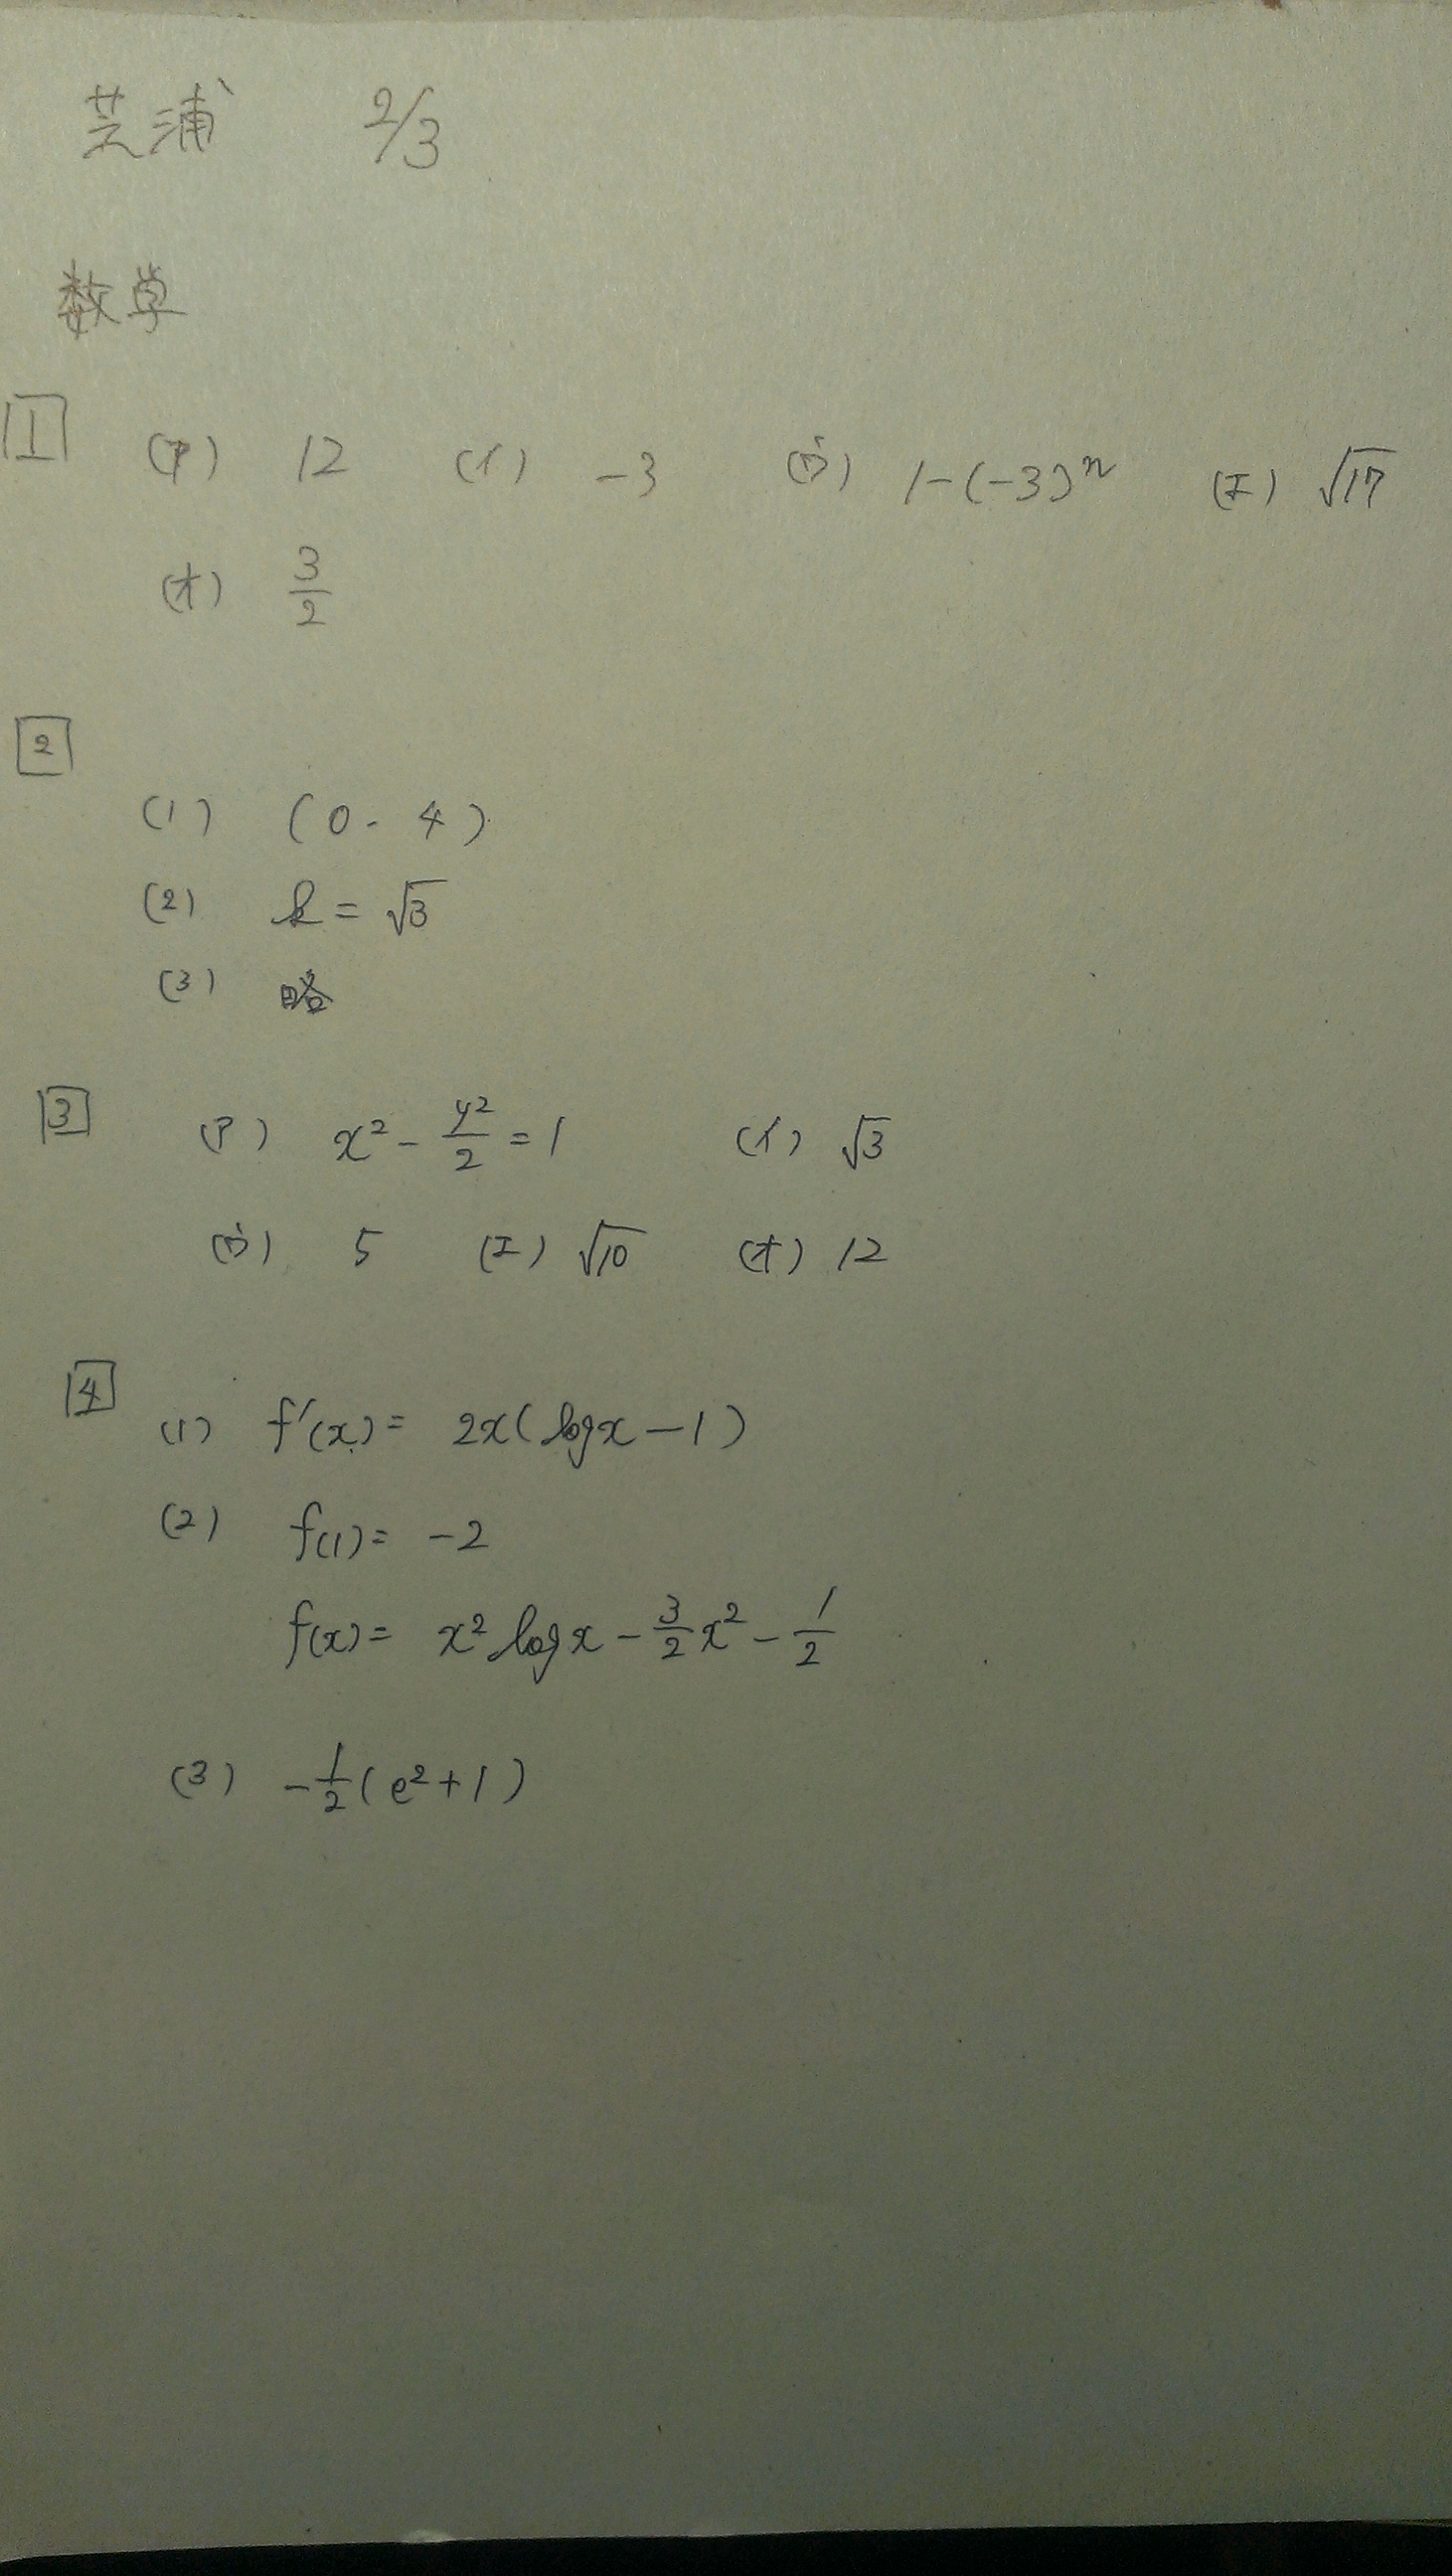 芝浦 2/3
数学
1 (ア) 12 (イ) -3 (ウ) 1-(-3)^n (エ) √17
(オ) 3/2
2
(1) (0. 4)
(2) k = √3
(3) 略
3 (ア) x² - y²/2 = 1 (イ) √3
(ウ) 5 (エ) √10 (オ) 12
4 (1) f'(x) = 2x(log x - 1)
(2) f(1) = -2
f(x) = x² log x - 3/2 x² - 1/2
(3) -1/2 (e² + 1)